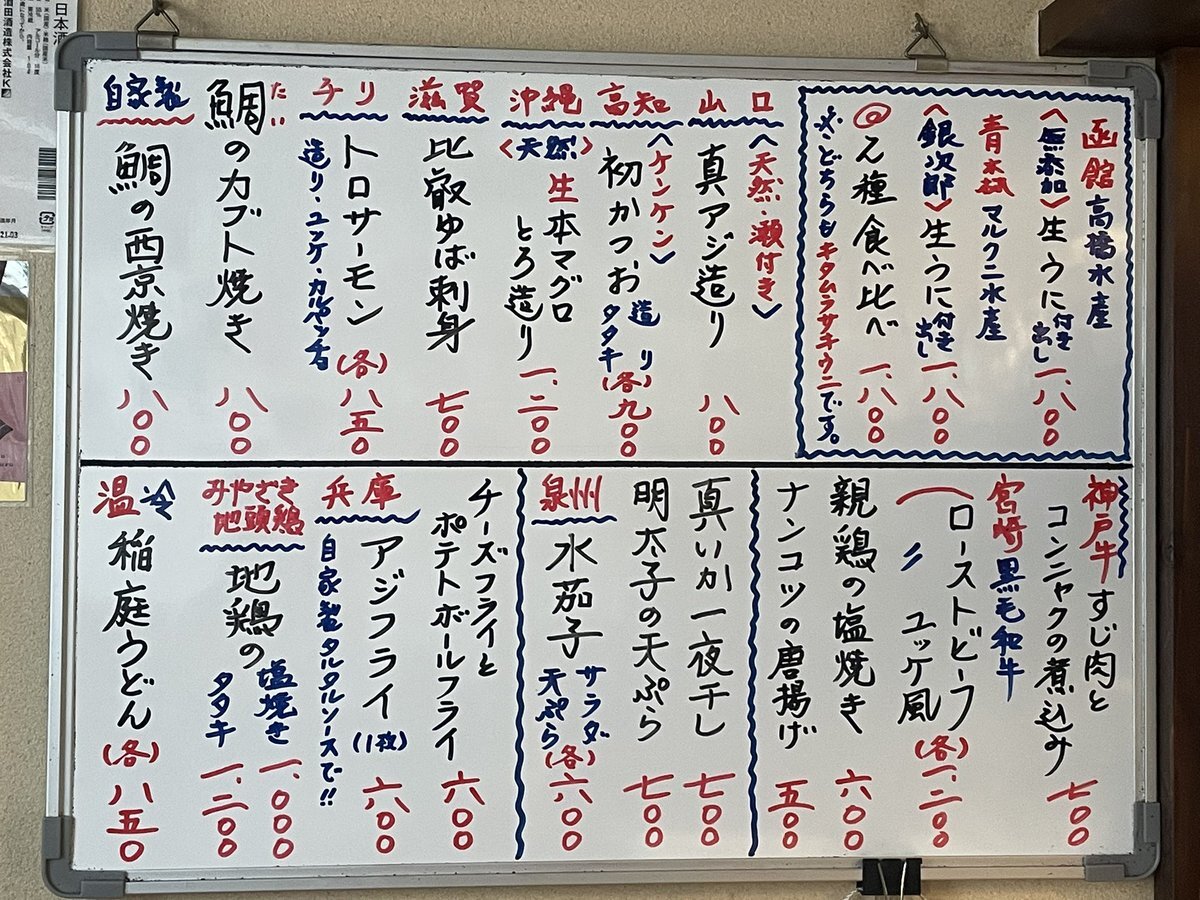 函館 高橋水産
〈無添加〉生うに付き出し 一、八〇〇
青木商店 マルクニ水産
〈銀次郎〉生うに付き出し 一、八〇〇
@ 2種食べ比べ 一、八〇〇
※どちらもキタムラサキウニです。
山口 〈天然・瀬付き〉
真アジ造り 八〇〇
高知 〈ケンケン〉
初かつお 造り タタキ (各)九〇〇
沖縄 〈天然〉
生本マグロ
とろ造り 一、二〇〇
滋賀
比叡ゆば刺身 七〇〇
チリ
トロサーモン (各)八五〇
造り・ユッケ・カルパッチョ
鯛のカブト焼き 八〇〇
たい
自家製
鯛の西京焼き 八〇〇
神戸牛 すじ肉と
コンニャクの煮込み 七〇〇
宮崎 黒毛和牛
ローストビーフ
〃 ユッケ風 (各)一、二〇〇
親鶏の塩焼き 六〇〇
ナンコツの唐揚げ 五〇〇
真いか一夜干し 七〇〇
明太子の天ぷら 七〇〇
泉州
水茄子 サラダ 天ぷら (各)六〇〇
チーズフライと
ポテトボールフライ 六〇〇
兵庫
アジフライ(1枚) 六八〇
自家製タルタルソースで!!
みやざき
地頭鶏
地鶏の 塩焼き 一、〇〇〇
タタキ 一、二〇〇
温 冷
稲庭うどん (各)八五〇
日本酒
酒田酒造株式会社K